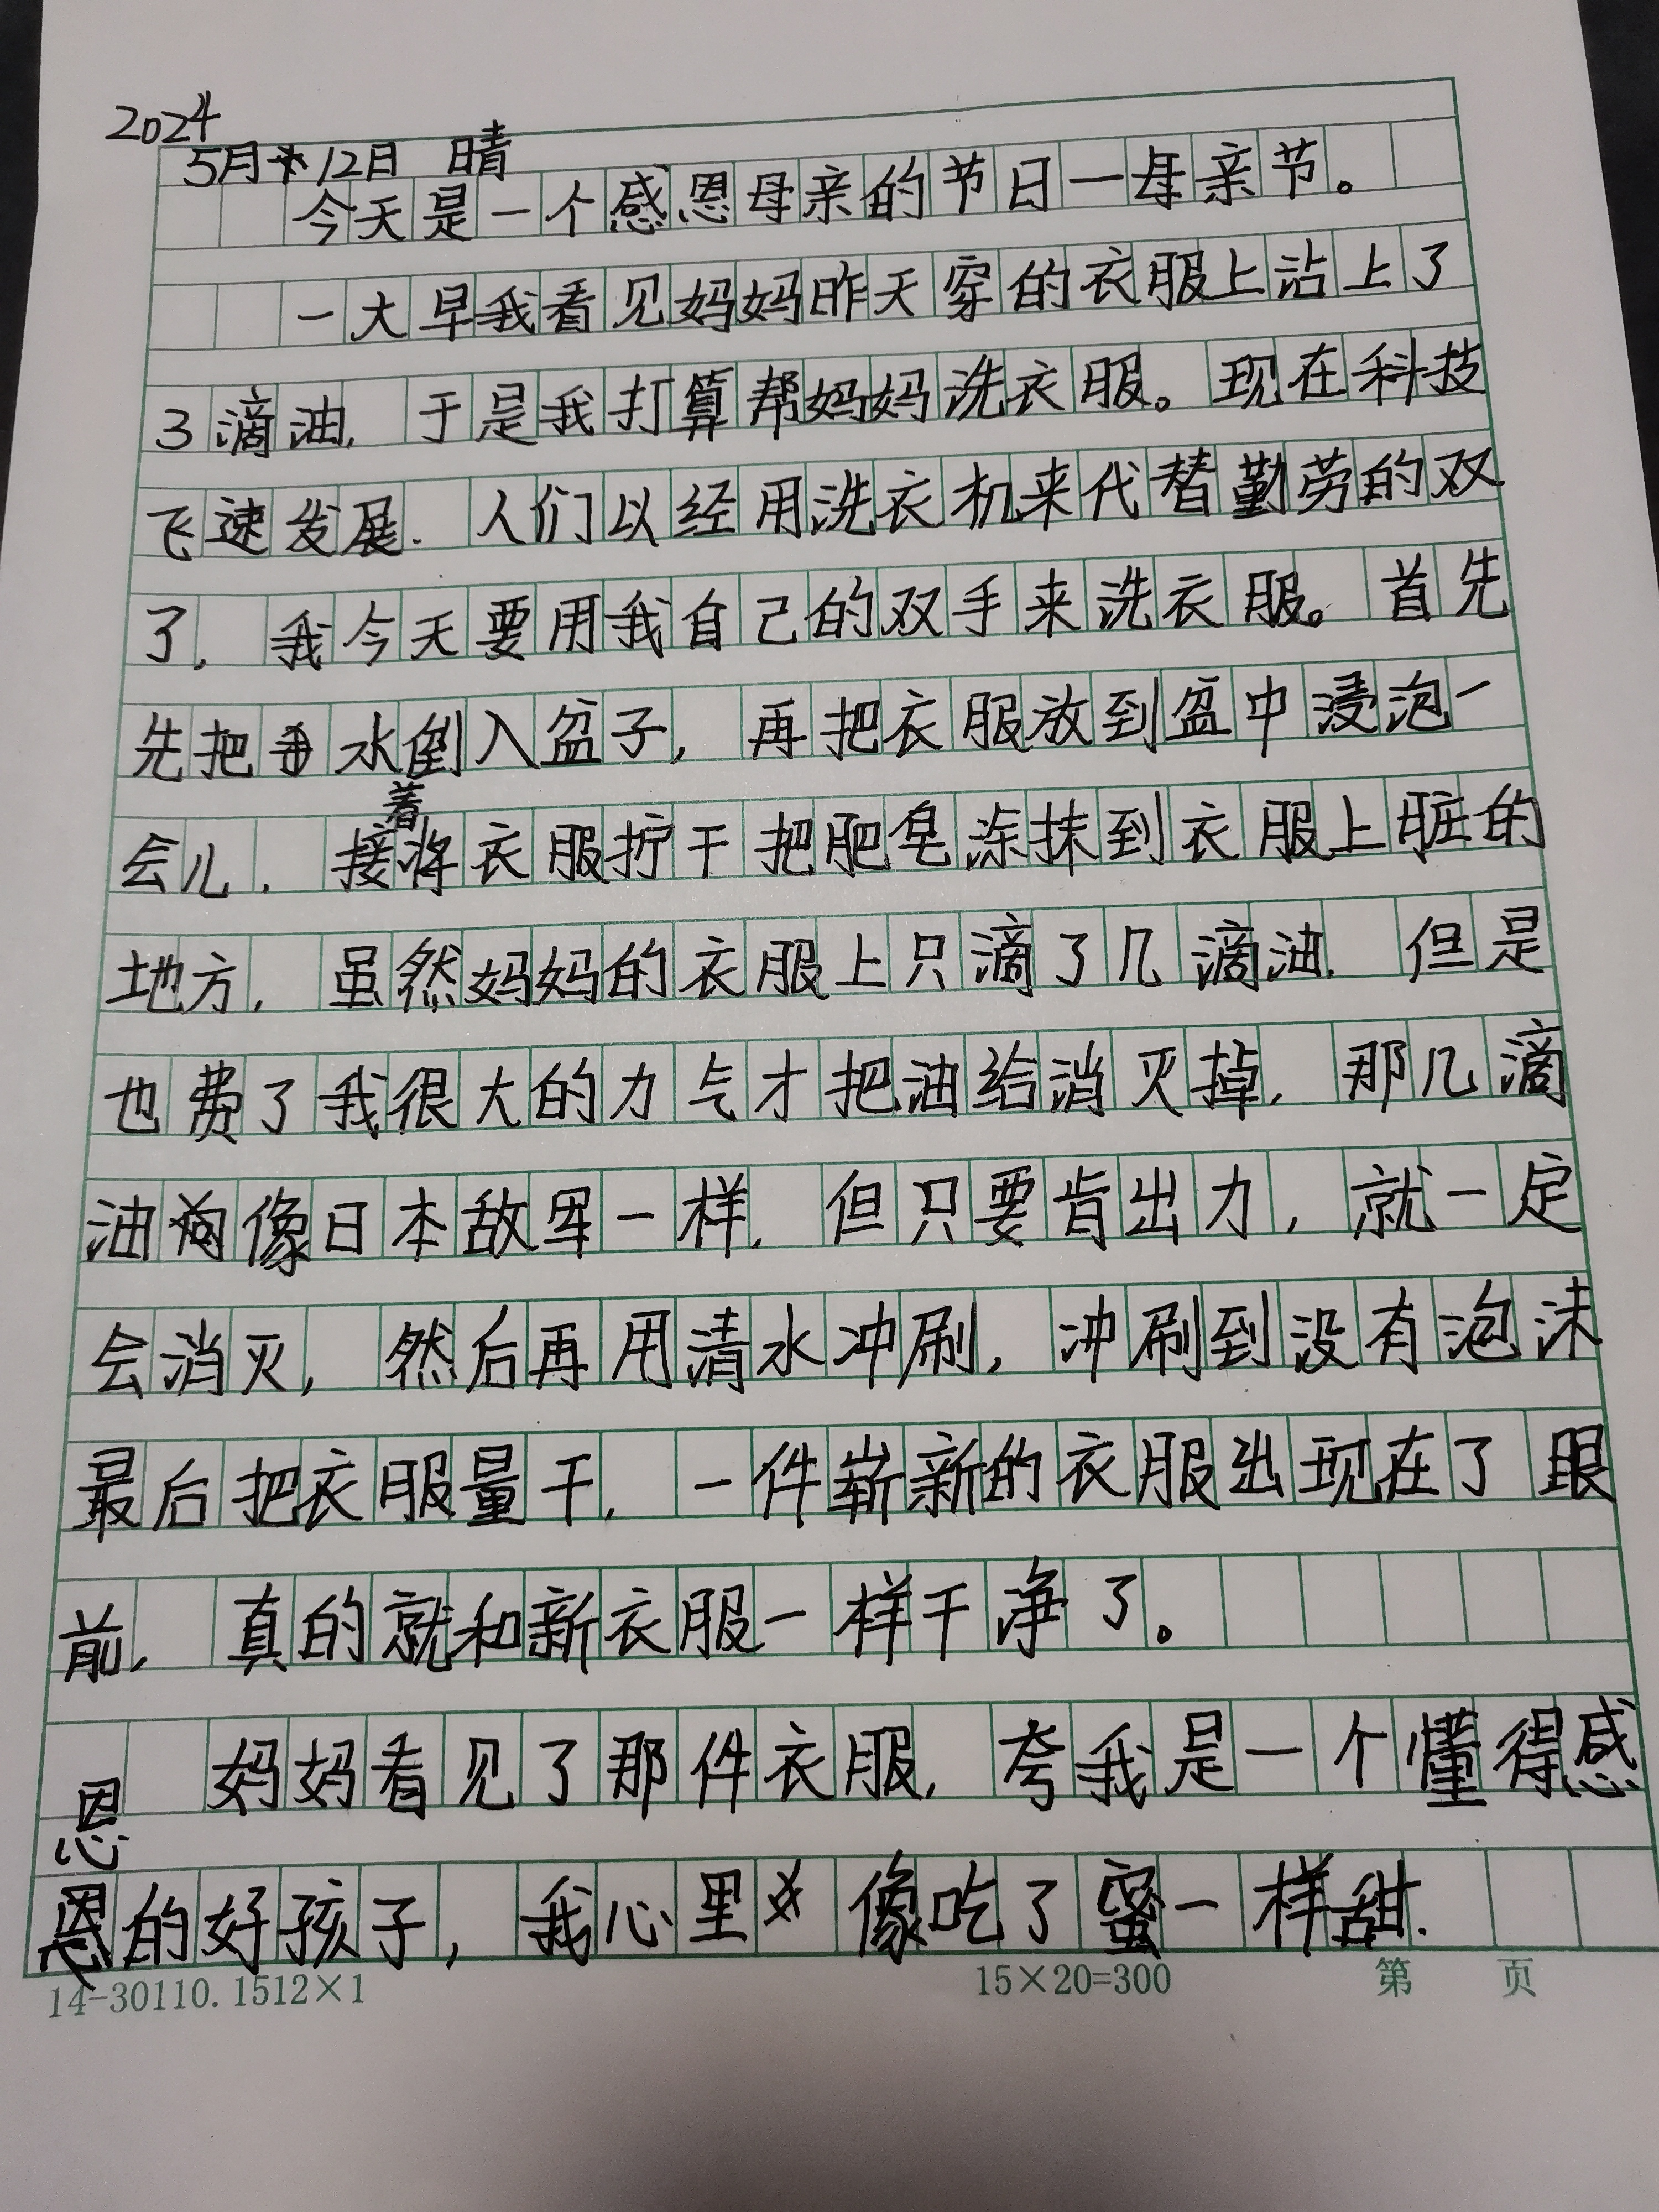 2024
5月12日 晴
今天是一个感恩母亲的节日一母亲节。
一大早我看见妈妈昨天穿的衣服上沾上了
3滴油,于是我打算帮妈妈洗衣服。现在科技
飞速发展.人们以经用洗衣机来代替勤劳的双
了,我今天要用我自己的双手来洗衣服。首先
先把水倒入盆子,再把衣服放到盆中浸泡一
会儿.接着将衣服拧干把肥皂涂抹到衣服上脏的
地方,虽然妈妈的衣服上只滴了几滴油.但是
也费了我很大的力气才把油给消灭掉,那几滴
油像日本敌军一样,但只要肯出力,就一定
会消灭,然后再用清水冲刷,冲刷到没有泡沫
最后把衣服量干,一件崭新的衣服出现在了眼
前,真的就和新衣服一样干净了。
妈妈看见了那件衣服,夸我是一个懂得感
恩
的好孩子,我心里像吃了蜜一样甜.
14-30110.1512×1 15×20=300 第 页